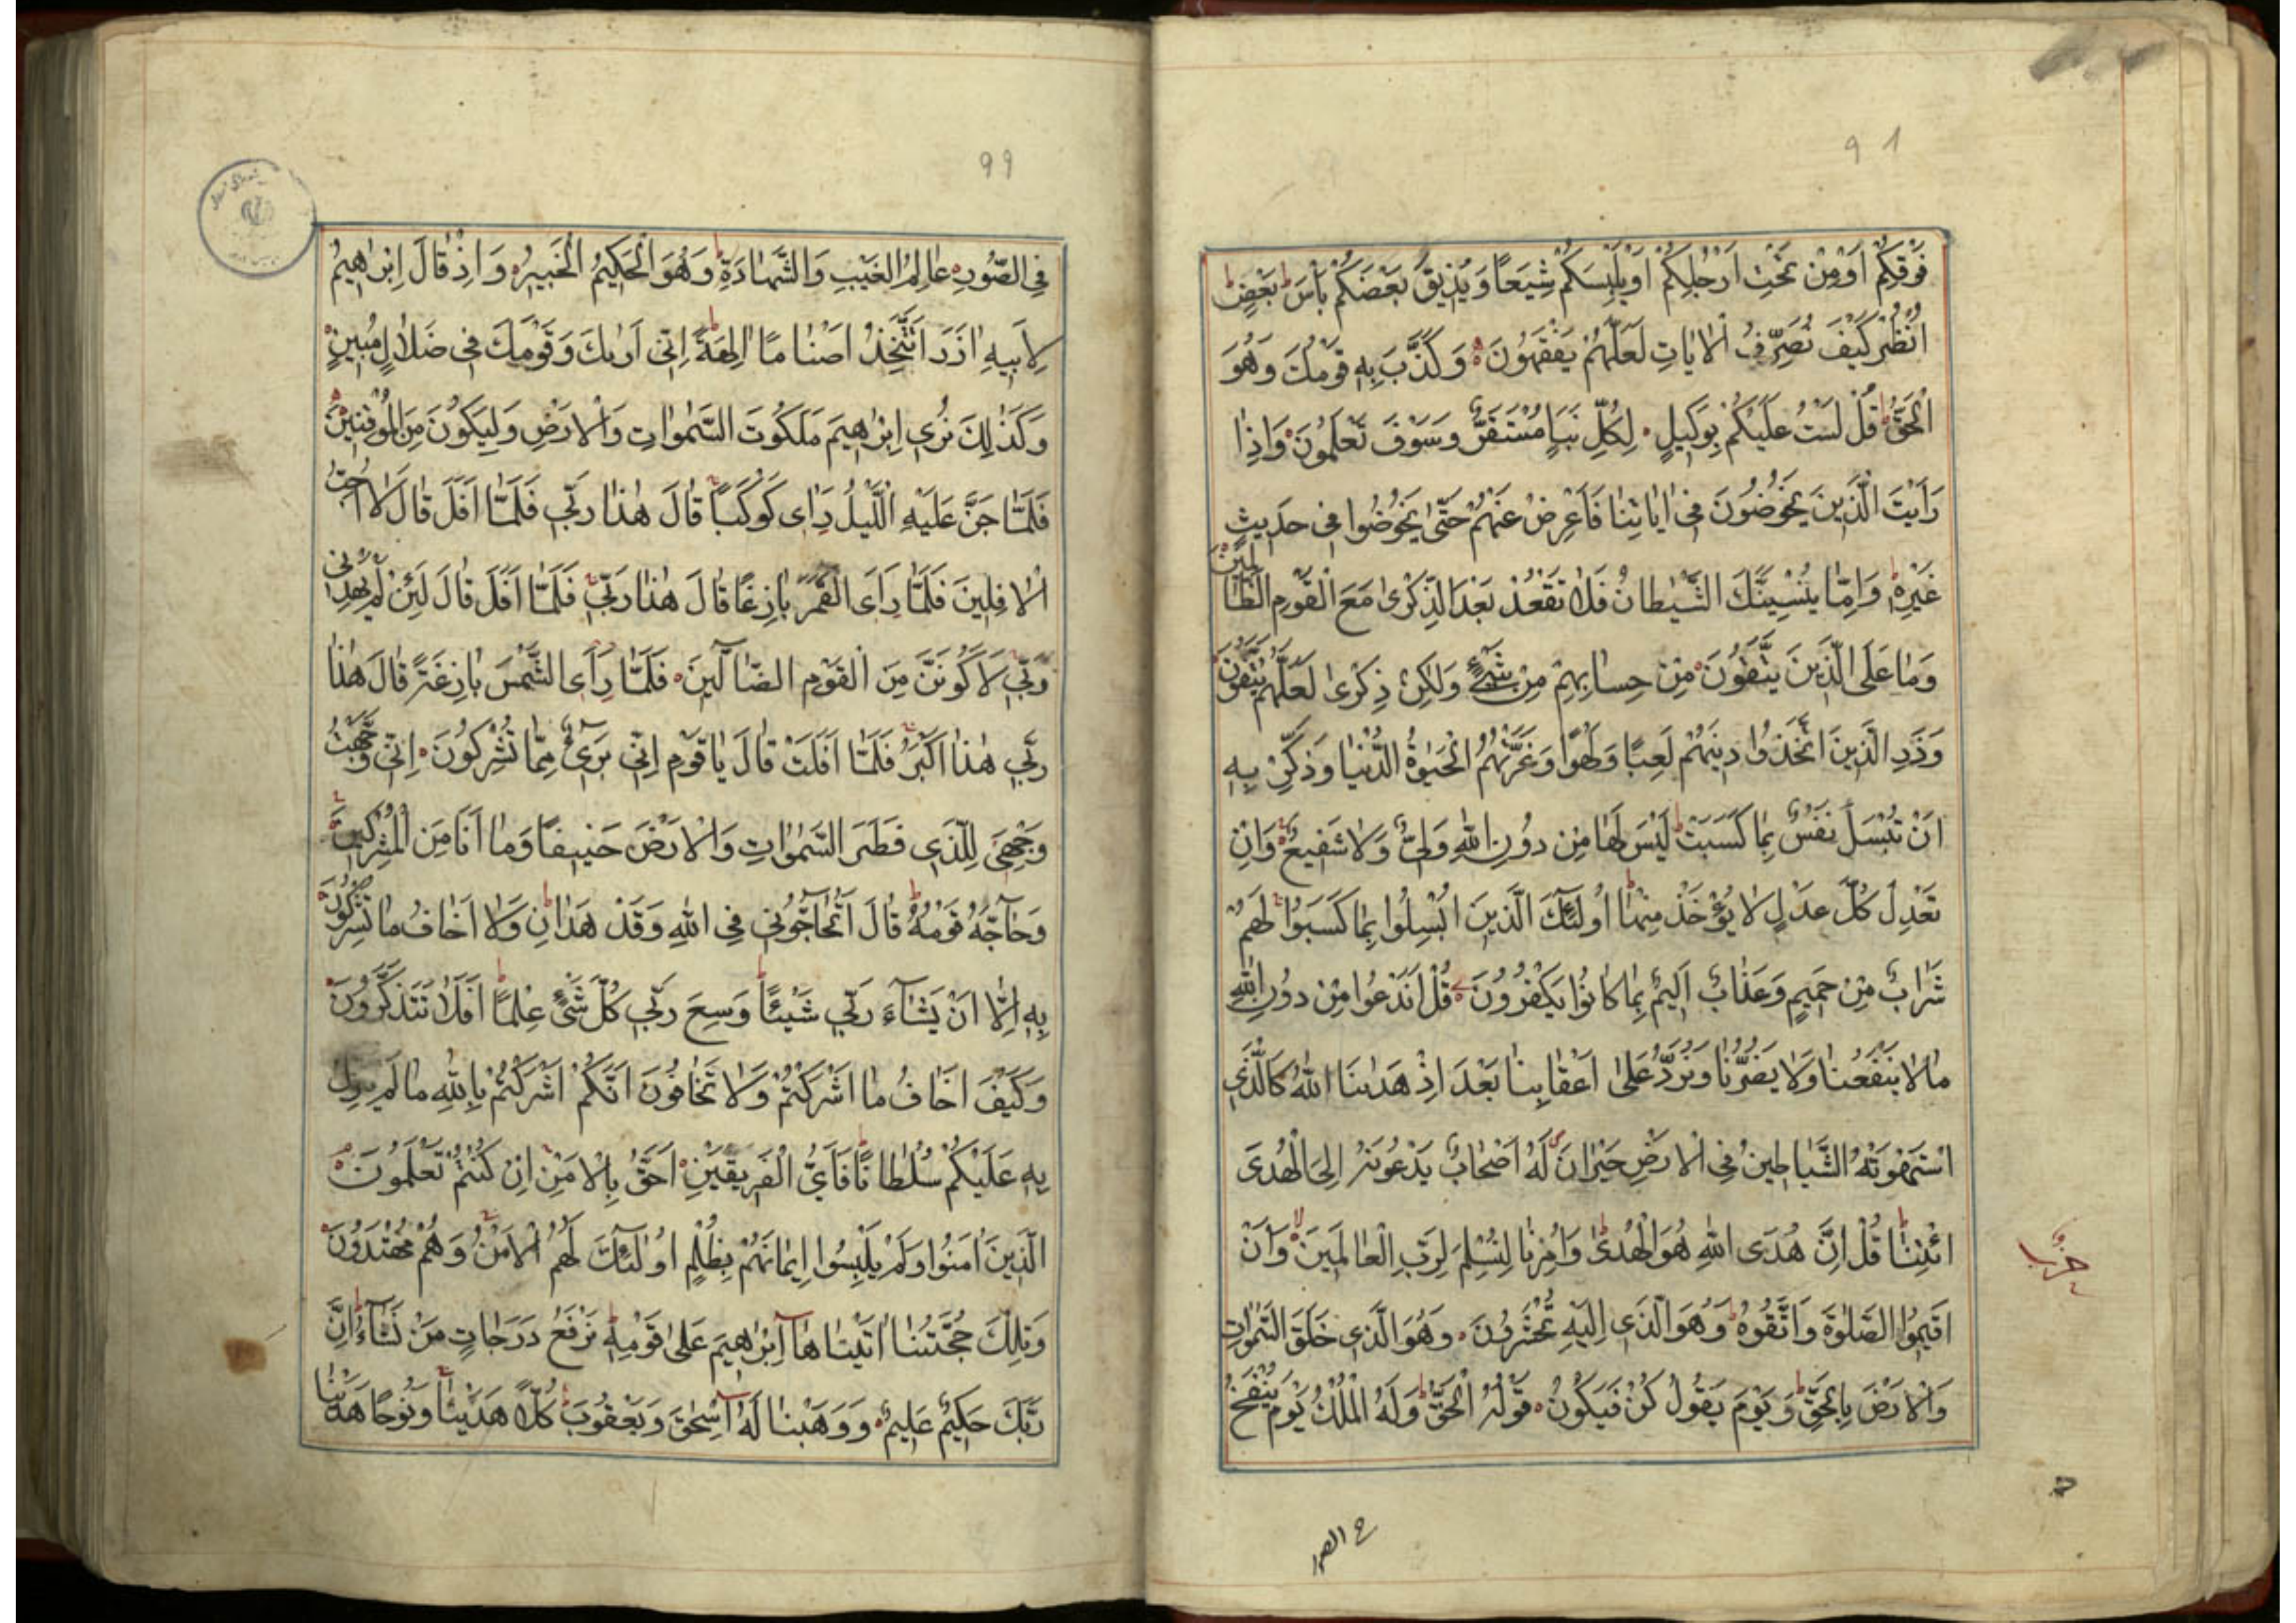 ٩١
فَوْقِكُمْ اَوْ مِنْ تَحْتِ اَرْجُلِكُمْ اَوْ يَلْبِسَكُمْ شِيَعًا وَيُذِيقَ بَعْضَكُمْ بَأْسَ بَعْضٍ
اُنْظُرْ كَيْفَ نُصَرِّفُ الْاٰيَاتِ لَعَلَّهُمْ يَفْقَهُونَ وَكَذَّبَ بِهِ قَوْمُكَ وَهُوَ
الْحَقُّ قُلْ لَسْتُ عَلَيْكُمْ بِوَكِيلٍ لِكُلِّ نَبَاٍ مُسْتَقَرٌّ وَسَوْفَ تَعْلَمُونَ وَاِذَا
رَاَيْتَ الَّذِينَ يَخُوضُونَ فِى اٰيَاتِنَا فَاَعْرِضْ عَنْهُمْ حَتّٰى يَخُوضُوا فِى حَدِيثٍ
غَيْرِهِ وَاِمَّا يُنْسِيَنَّكَ الشَّيْطَانُ فَلَا تَقْعُدْ بَعْدَ الذِّكْرٰى مَعَ الْقَوْمِ الظَّالِمِينَ
وَمَا عَلَى الَّذِينَ يَتَّقُونَ مِنْ حِسَابِهِمْ مِنْ شَىْءٍ وَلٰكِنْ ذِكْرٰى لَعَلَّهُمْ يَتَّقُونَ
وَذَرِ الَّذِينَ اتَّخَذُوا دِينَهُمْ لَعِبًا وَلَهْوًا وَغَرَّتْهُمُ الْحَيٰوةُ الدُّنْيَا وَذَكِّرْ بِهِ
اَنْ تُبْسَلَ نَفْسٌ بِمَا كَسَبَتْ لَيْسَ لَهَا مِنْ دُونِ اللّٰهِ وَلِىٌّ وَلَا شَفِيعٌ وَاِنْ
تَعْدِلْ كُلَّ عَدْلٍ لَا يُؤْخَذْ مِنْهَا اُولٰئِكَ الَّذِينَ اُبْسِلُوا بِمَا كَسَبُوا لَهُمْ
شَرَابٌ مِنْ حَمِيمٍ وَعَذَابٌ اَلِيمٌ بِمَا كَانُوا يَكْفُرُونَ قُلْ اَنَدْعُوا مِنْ دُونِ اللّٰهِ
مَا لَا يَنْفَعُنَا وَلَا يَضُرُّنَا وَنُرَدُّ عَلٰى اَعْقَابِنَا بَعْدَ اِذْ هَدٰينَا اللّٰهُ كَالَّذِى
اسْتَهْوَتْهُ الشَّيَاطِينُ فِى الْاَرْضِ حَيْرَانَ لَهُ اَصْحَابٌ يَدْعُونَهُ اِلَى الْهُدَى
ائْتِنَا قُلْ اِنَّ هُدَى اللّٰهِ هُوَ الْهُدٰى وَاُمِرْنَا لِنُسْلِمَ لِرَبِّ الْعَالَمِينَ وَاَنْ
حزب
اَقِيمُوا الصَّلٰوةَ وَاتَّقُوهُ وَهُوَ الَّذِى اِلَيْهِ تُحْشَرُونَ وَهُوَ الَّذِى خَلَقَ السَّمٰوَاتِ
وَالْاَرْضَ بِالْحَقِّ وَيَوْمَ يَقُولُ كُنْ فَيَكُونُ قَوْلُهُ الْحَقُّ وَلَهُ الْمُلْكُ يَوْمَ يُنْفَخُ
فى الصور
٩٩
فِى الصُّورِ عَالِمُ الْغَيْبِ وَالشَّهَادَةِ وَهُوَ الْحَكِيمُ الْخَبِيرُ وَاِذْ قَالَ اِبْرٰهِيمُ
لِاَبِيهِ اٰزَرَ اَتَتَّخِذُ اَصْنَامًا اٰلِهَةً اِنِّى اَرٰيكَ وَقَوْمَكَ فِى ضَلَالٍ مُبِينٍ
وَكَذٰلِكَ نُرِى اِبْرٰهِيمَ مَلَكُوتَ السَّمٰوَاتِ وَالْاَرْضِ وَلِيَكُونَ مِنَ الْمُوقِنِينَ
فَلَمَّا جَنَّ عَلَيْهِ الَّيْلُ رَاٰى كَوْكَبًا قَالَ هٰذَا رَبِّى فَلَمَّا اَفَلَ قَالَ لَا اُحِبُّ
الْاٰفِلِينَ فَلَمَّا رَاَى الْقَمَرَ بَازِغًا قَالَ هٰذَا رَبِّى فَلَمَّا اَفَلَ قَالَ لَئِنْ لَمْ يَهْدِنِى
رَبِّى لَاَكُونَنَّ مِنَ الْقَوْمِ الضَّآلِّينَ فَلَمَّا رَاَى الشَّمْسَ بَازِغَةً قَالَ هٰذَا
رَبِّى هٰذَا اَكْبَرُ فَلَمَّا اَفَلَتْ قَالَ يَا قَوْمِ اِنِّى بَرِىءٌ مِمَّا تُشْرِكُونَ اِنِّى وَجَّهْتُ
وَجْهِىَ لِلَّذِى فَطَرَ السَّمٰوَاتِ وَالْاَرْضَ حَنِيفًا وَمَا اَنَا مِنَ الْمُشْرِكِينَ
وَحَآجَّهُ قَوْمُهُ قَالَ اَتُحَآجُّونِّى فِى اللّٰهِ وَقَدْ هَدَانِ وَلَا اَخَافُ مَا تُشْرِكُونَ
بِهِ اِلَّا اَنْ يَشَآءَ رَبِّى شَيْئًا وَسِعَ رَبِّى كُلَّ شَىْءٍ عِلْمًا اَفَلَا تَتَذَكَّرُونَ
وَكَيْفَ اَخَافُ مَا اَشْرَكْتُمْ وَلَا تَخَافُونَ اَنَّكُمْ اَشْرَكْتُمْ بِاللّٰهِ مَا لَمْ يُنَزِّلْ
بِهِ عَلَيْكُمْ سُلْطَانًا فَاَىُّ الْفَرِيقَيْنِ اَحَقُّ بِالْاَمْنِ اِنْ كُنْتُمْ تَعْلَمُونَ
الَّذِينَ اٰمَنُوا وَلَمْ يَلْبِسُوا اِيمَانَهُمْ بِظُلْمٍ اُولٰئِكَ لَهُمُ الْاَمْنُ وَهُمْ مُهْتَدُونَ
وَتِلْكَ حُجَّتُنَا اٰتَيْنَاهَا اِبْرٰهِيمَ عَلٰى قَوْمِهِ نَرْفَعُ دَرَجَاتٍ مَنْ نَشَآءُ اِنَّ
رَبَّكَ حَكِيمٌ عَلِيمٌ وَوَهَبْنَا لَهُ اِسْحٰقَ وَيَعْقُوبَ كُلًّا هَدَيْنَا وَنُوحًا هَدَيْنَا